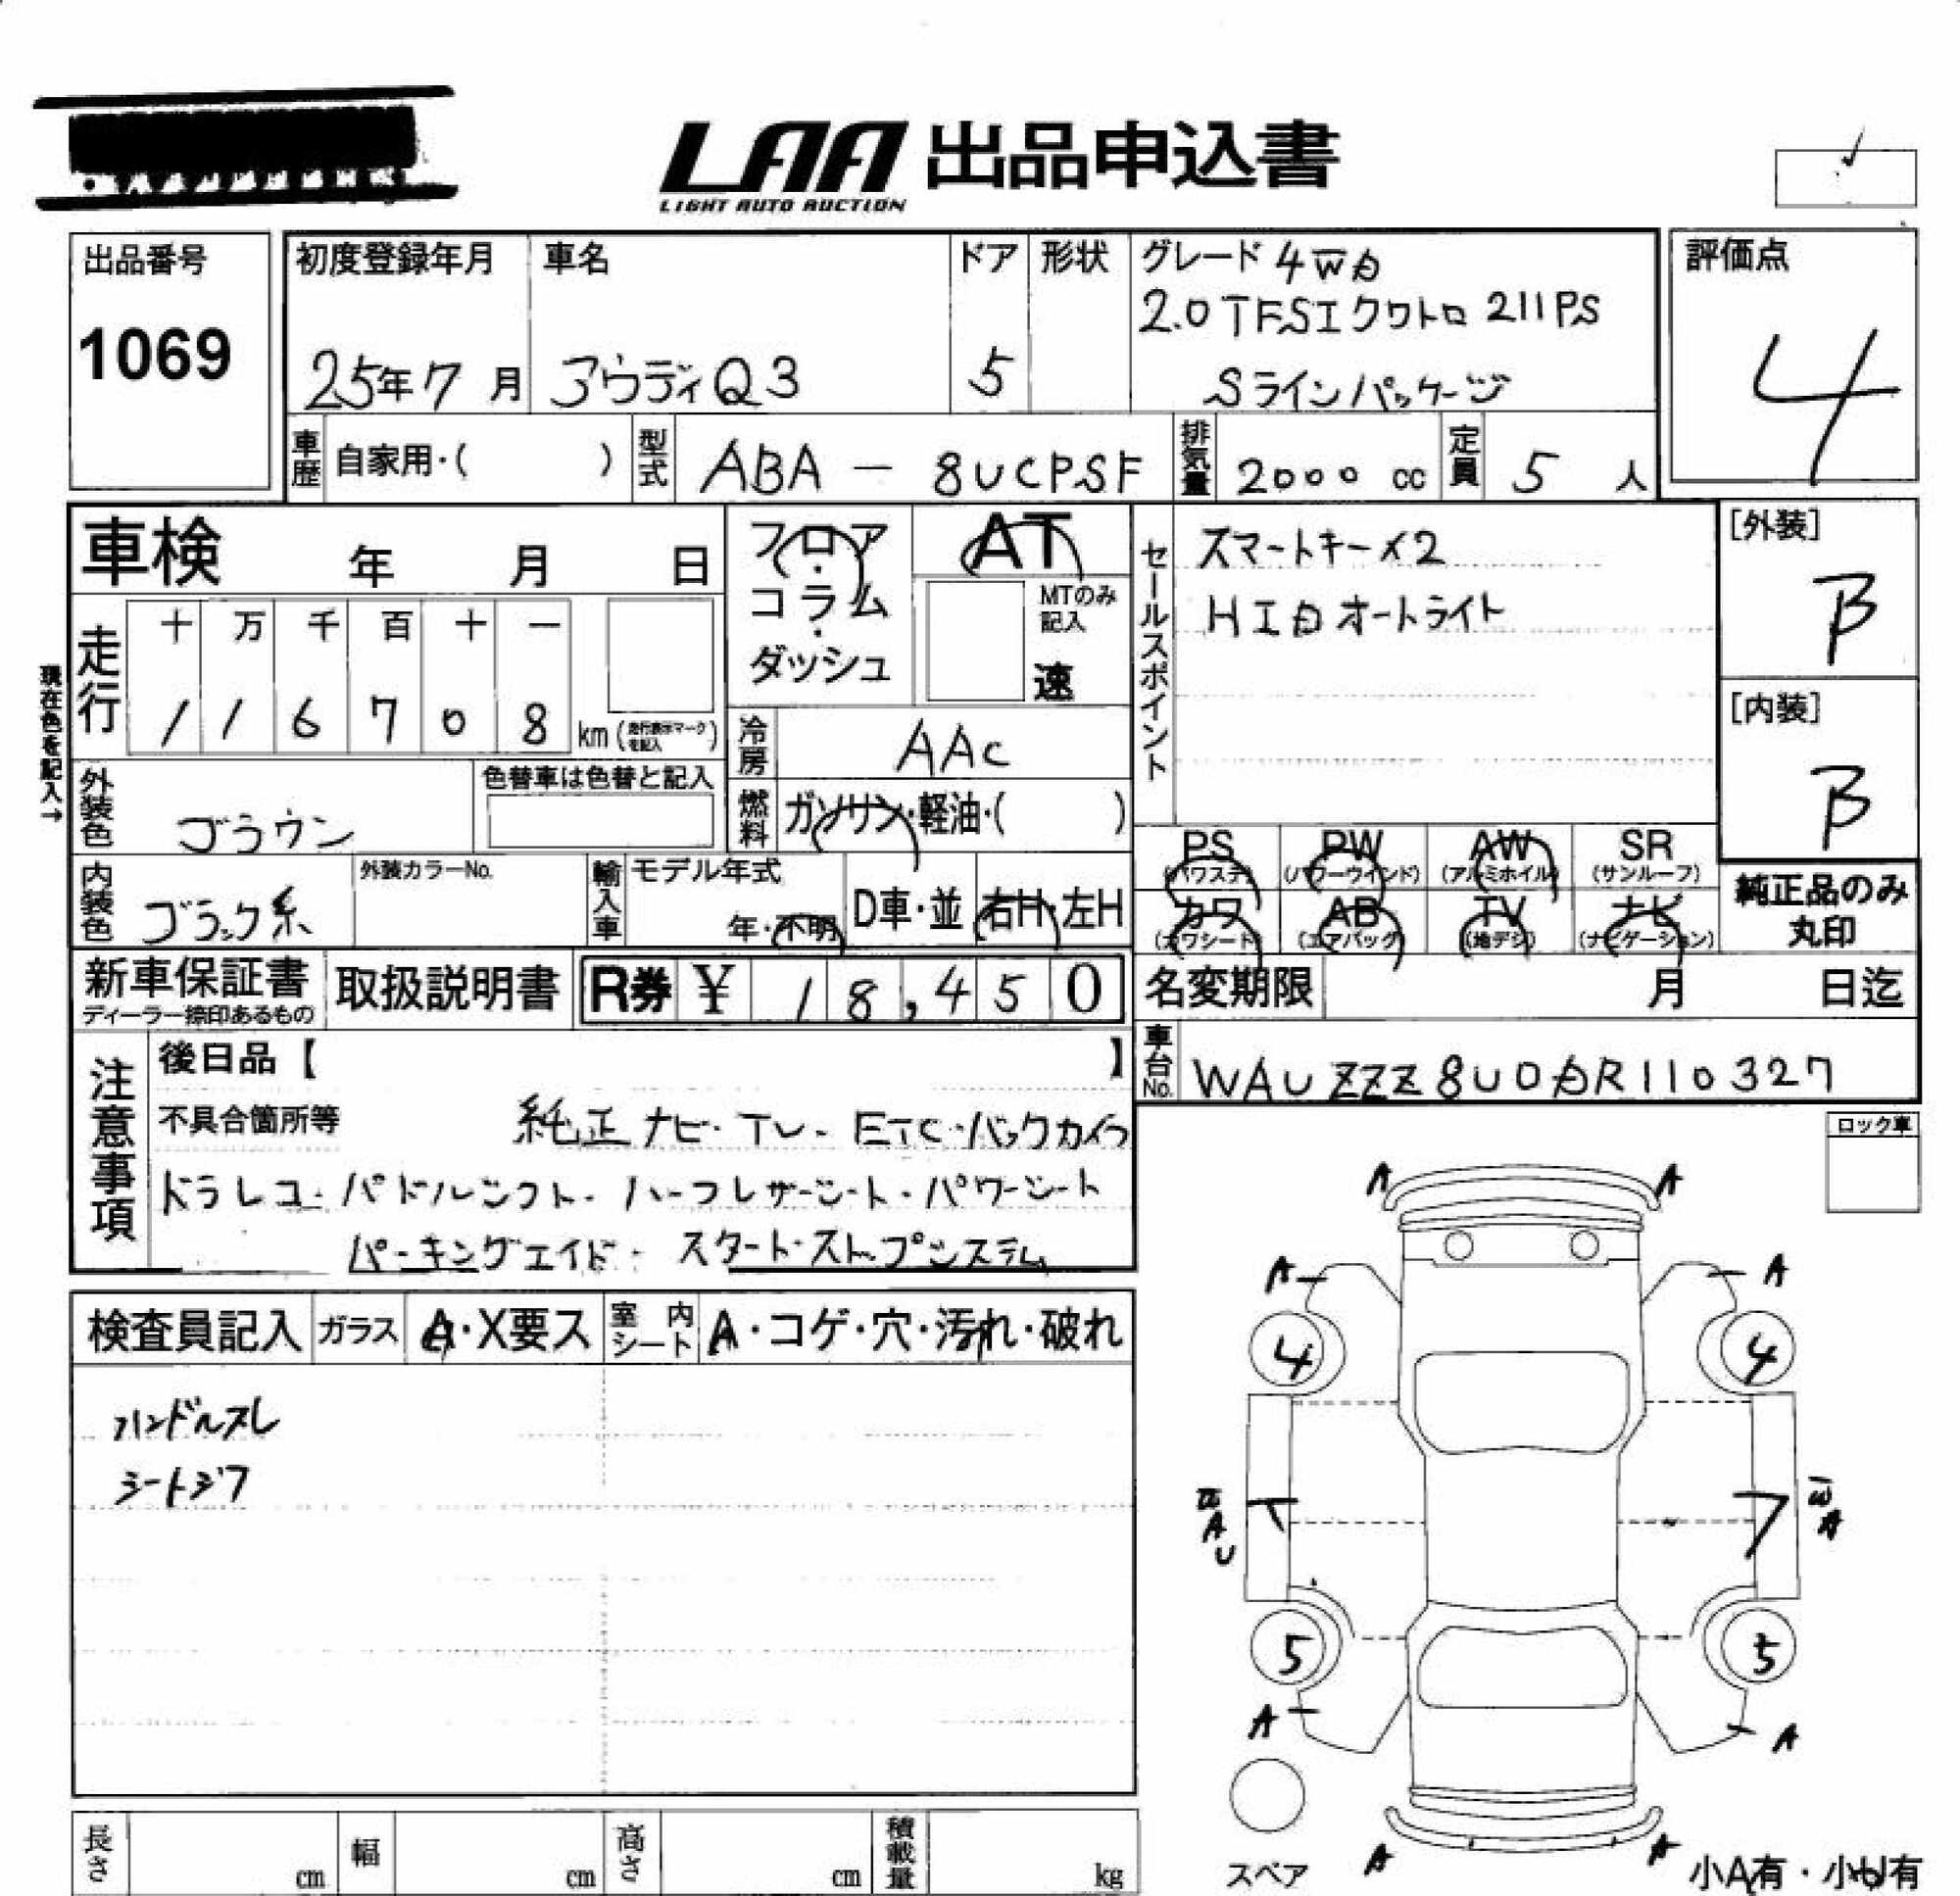 LAA 出品申込書
LIGHT AUTO AUCTION
出品番号
1069
初度登録年月
25年7月
車名
アウディQ3
ドア
5
形状
グレード 4WD
2.0TFSIクワトロ 211PS
Sラインパッケージ
評価点
4
車歴 自家用・( )
型式 ABA - 8UCPSF
排気量 2000 cc
定員 5 人
車検 年 月 日
走行
十 万 千 百 十 一
1 1 6 7 0 8 km (走行表示マークを記入)
現在色を記入→
外装色 ブラウン
色替車は色替と記入
内装色 ブラック系
外装カラーNo.
フロア・コラム・ダッシュ
AT
MTのみ記入
速
冷房 AAC
燃料 ガソリン・軽油・( )
輸入車
モデル年式
年・不明
D車・並
右H・左H
セールスポイント
スマートキー×2
HIDオートライト
[外装]
B
[内装]
B
PS (パワステ)
PW (パワーウインド)
AW (アルミホイル)
SR (サンルーフ)
カワ (カワシート)
AB (エアバッグ)
TV (地デジ)
ナビ (ナビゲーション)
純正品のみ
丸印
新車保証書
ディーラー捺印あるもの
取扱説明書
R券 ¥ 18,450
名変期限 月 日迄
車台No. WAUZZZ8U0DR110327
注意事項
後日品【 】
不具合箇所等
純正ナビ・TV・ETC・バックカメラ
ドラレコ・パドルシフト・ハーフレザーシート・パワーシート
パーキングエイド・スタートストップシステム
ロック車
検査員記入
ガラス A・X要ス
室内シート A・コゲ・穴・汚れ・破れ
ハンドルスレ
シートシワ
A A
A A
4 4
W A U
W A
5 5
A A
A A
スペア
小A有・小U有
長さ cm
幅 cm
高さ cm
積載量 kg